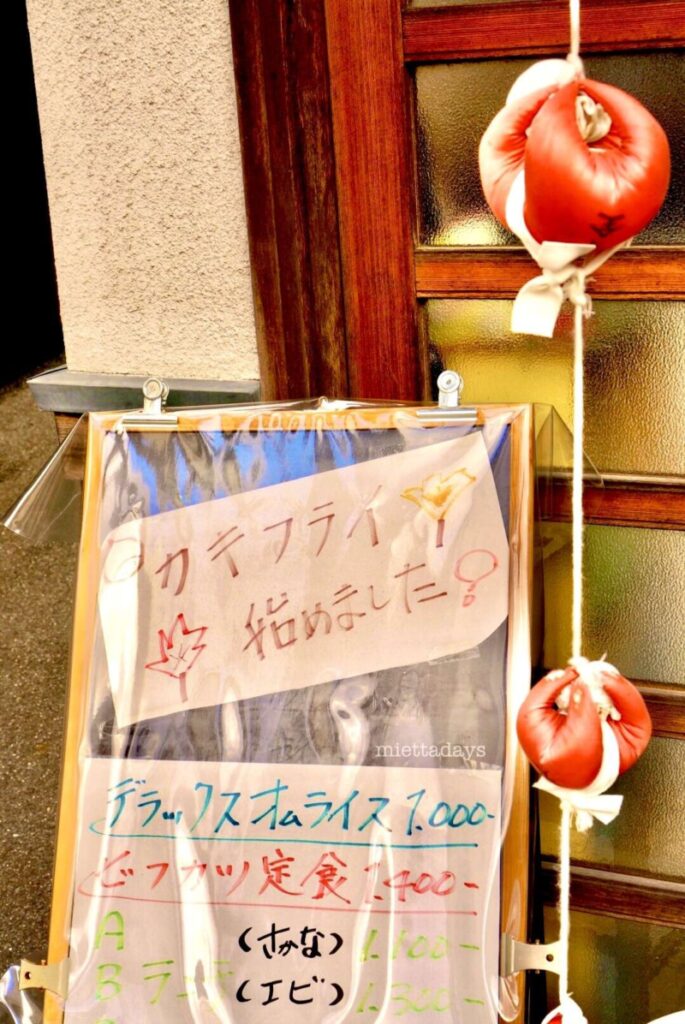 カキフライ
始めました!
miettadays
デラックスオムライス 1.000-
ビーフカツ定食 1.400-
A (さかな) 1.100-
B ランチ (エビ) 1.300-